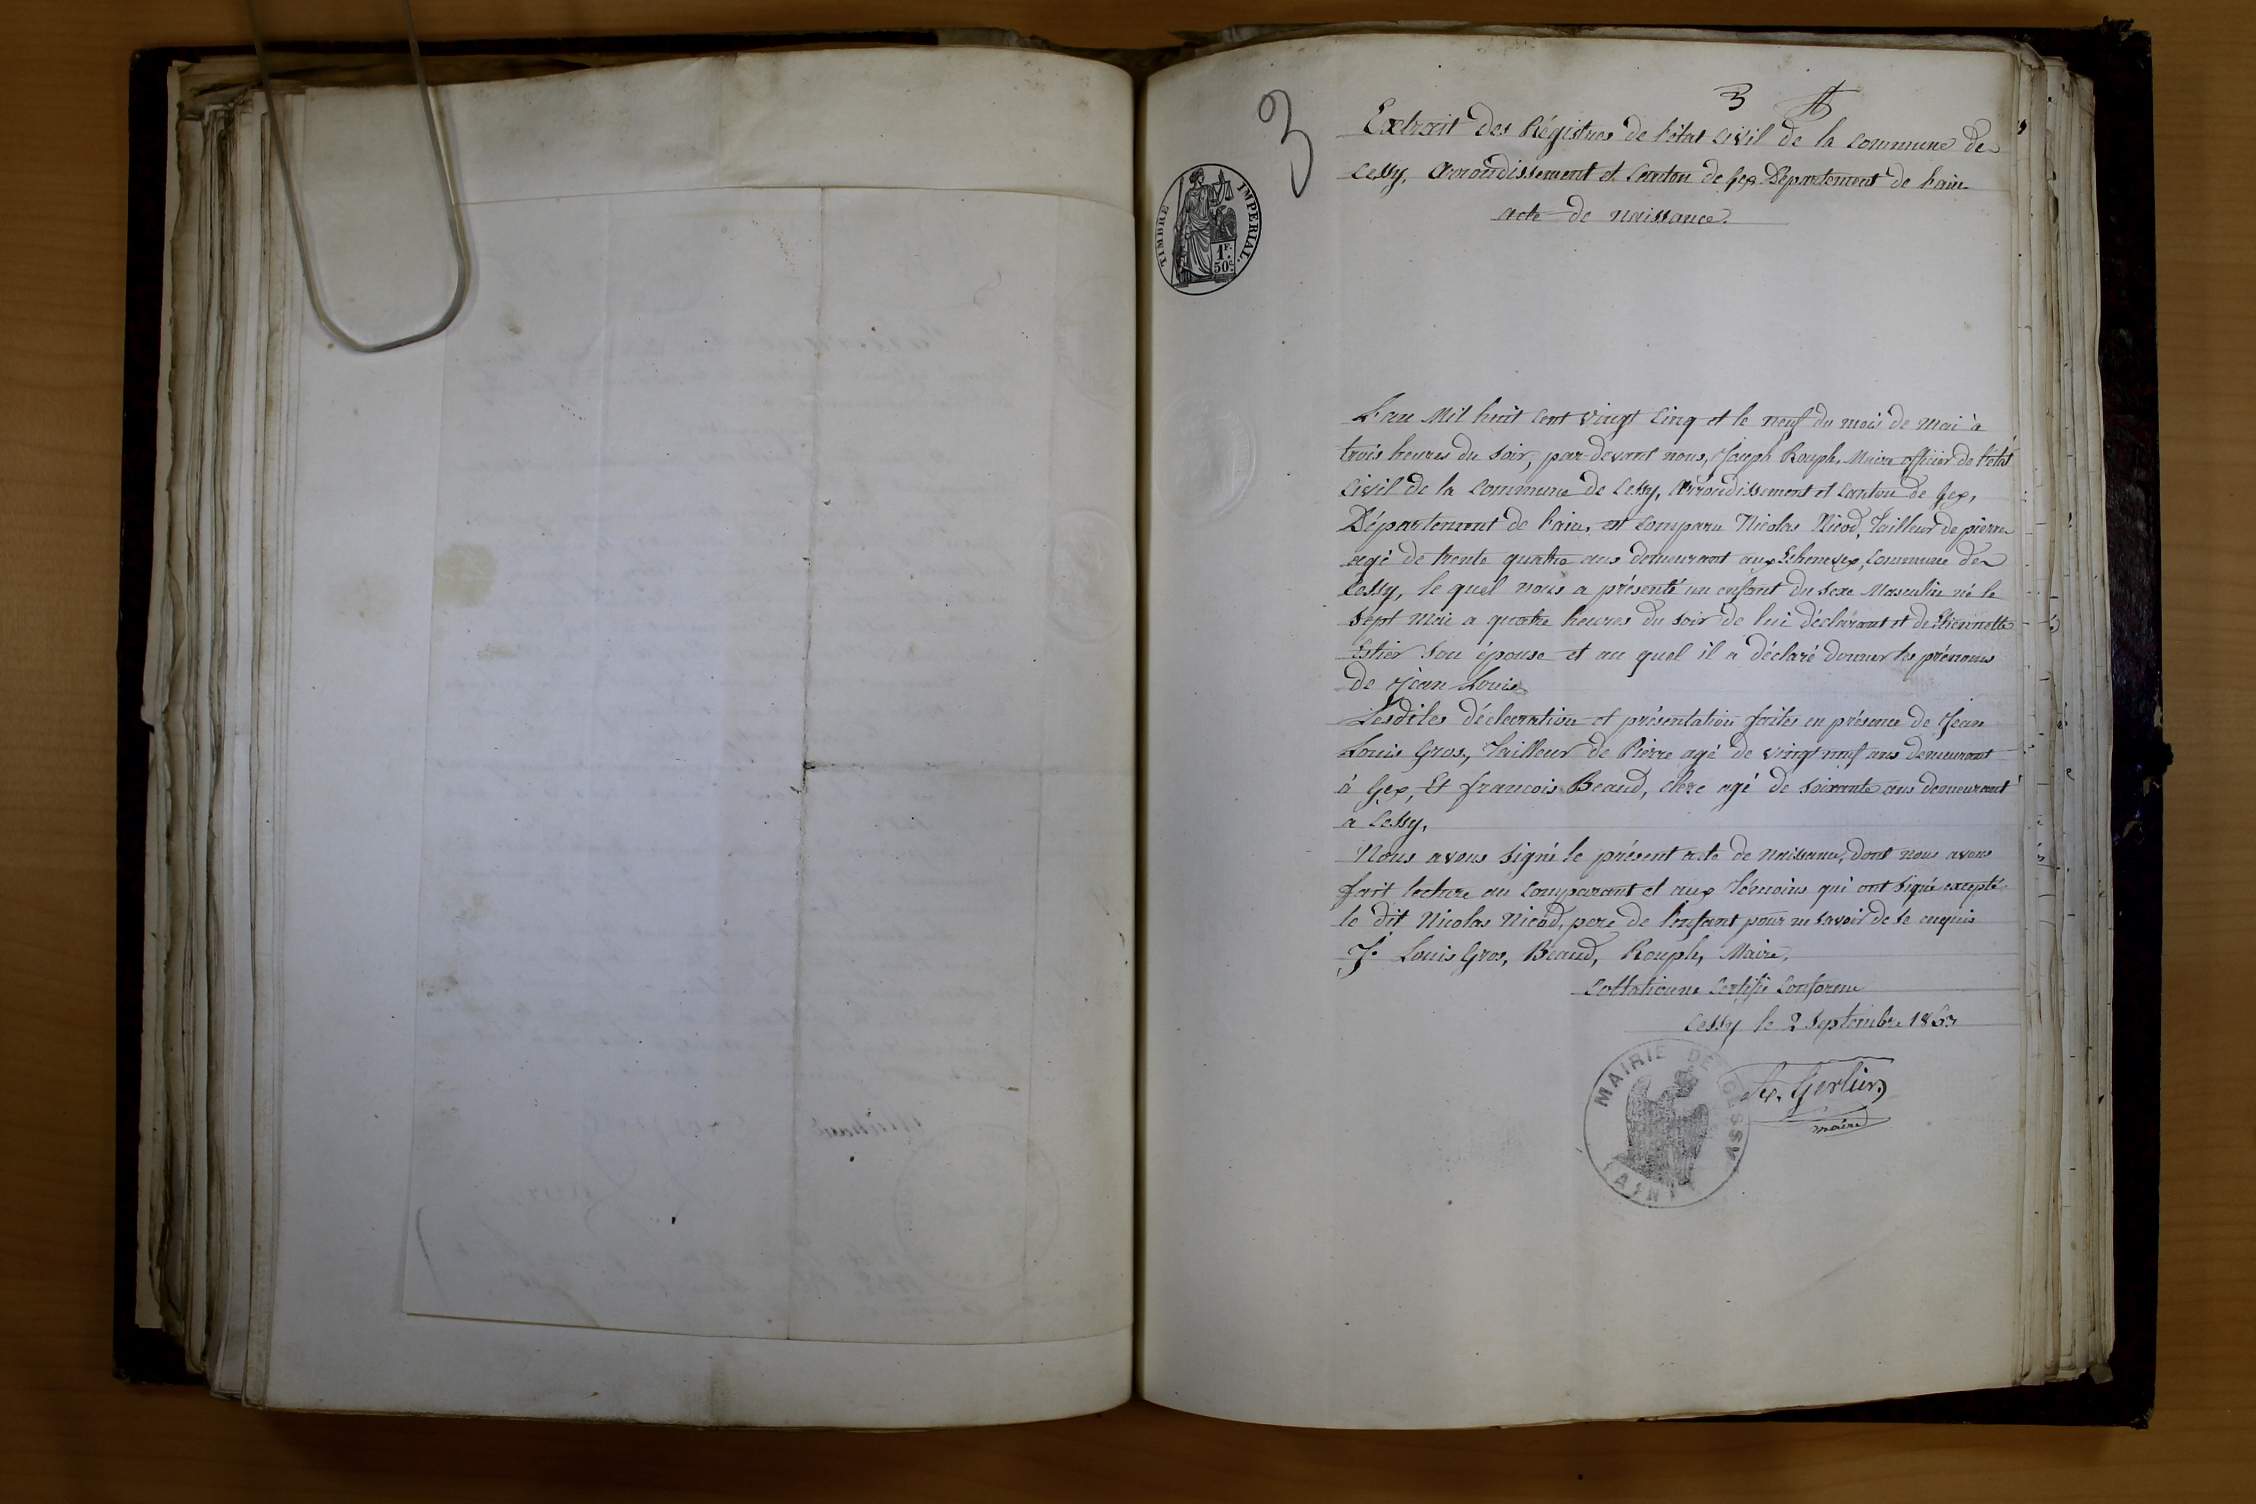 3
3
Extrait des Régistres de l'état Civil de la Commune de
Cessy, Arrondissement et Canton de Gex Département de l'ain
acte de naissance.
TIMBRE IMPERIAL.
1F.
50c
L'an Mil huit Cent Vingt Cinq et le neuf du mois de Mai à
trois heures du soir, par-devant nous, Joseph Rouph, Maire officier de l'état
Civil de la Commune de Cessy, Arrondissement et Canton de Gex,
Département de l'ain, est Comparu Nicolas Nicod, Tailleur de pierre
agé de trente quatre ans demeurant aux Echenevex, Commune de
Cessy, le quel nous a présenté un enfant du sexe Masculin né le
sept Mai a quatre heures du soir de lui déclarant et de Etiennette
Estier son épouse et au quel il a déclaré donner les prénoms
de Jean Louis
Lesdites déclaration et présentation faites en présence de Jean
Louis Gros, Tailleur de Pierre agé de vingt neuf ans demeurant
à Gex, Et francois Beaud, clerc agé de soixante ans demeurant
a Cessy,
Nous avons signé le présent acte de Naissance, dont nous avons
fait lecture au Comparant et aux Témoins qui ont signé excepté
le dit Nicolas Nicod, pere de l'enfant pour ne savoir de ce enquis
Jn Louis Gros, Beaud, Rouph, Maire,
Collationné Certifié Conforme
Cessy le 2 Septembre 1863
MAIRIE DE CESSY
(AIN)
Gerlier
maire